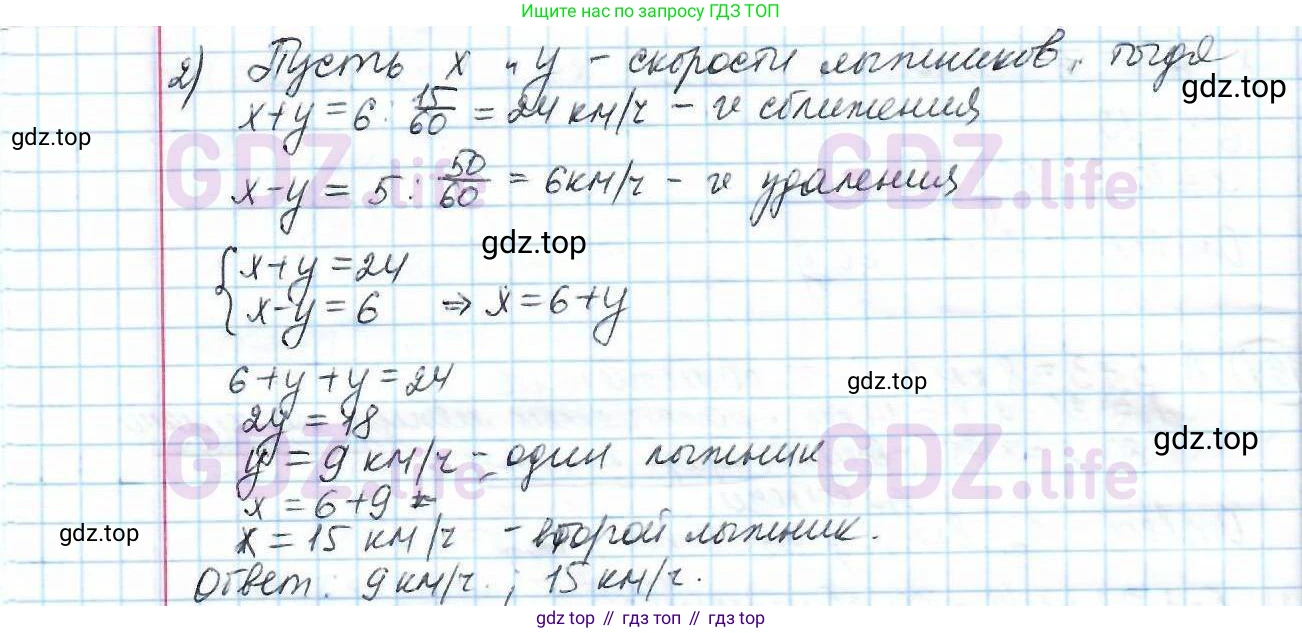 Ищите нас по запросу ГДЗ ТОП
2) Пусть x и y - скорости лыжников, тогда
gdz.top
x+y = 6 : 15/60 = 24 км/ч - v сближения
gdz.top
GDZ.life GDZ.life
x-y = 5 : 50/60 = 6 км/ч - v удаления
gdz.top
{ x+y = 24
x-y = 6 ⇒ x = 6+y
6+y+y = 24
gdz.top
2y = 18
gdz.top
GDZ.life GDZ.life
y = 9 км/ч - один лыжник
x = 6+9 =
gdz.top
x = 15 км/ч - второй лыжник.
Ответ: 9 км/ч. ; 15 км/ч.
gdz.top // гдз топ // gdz.top